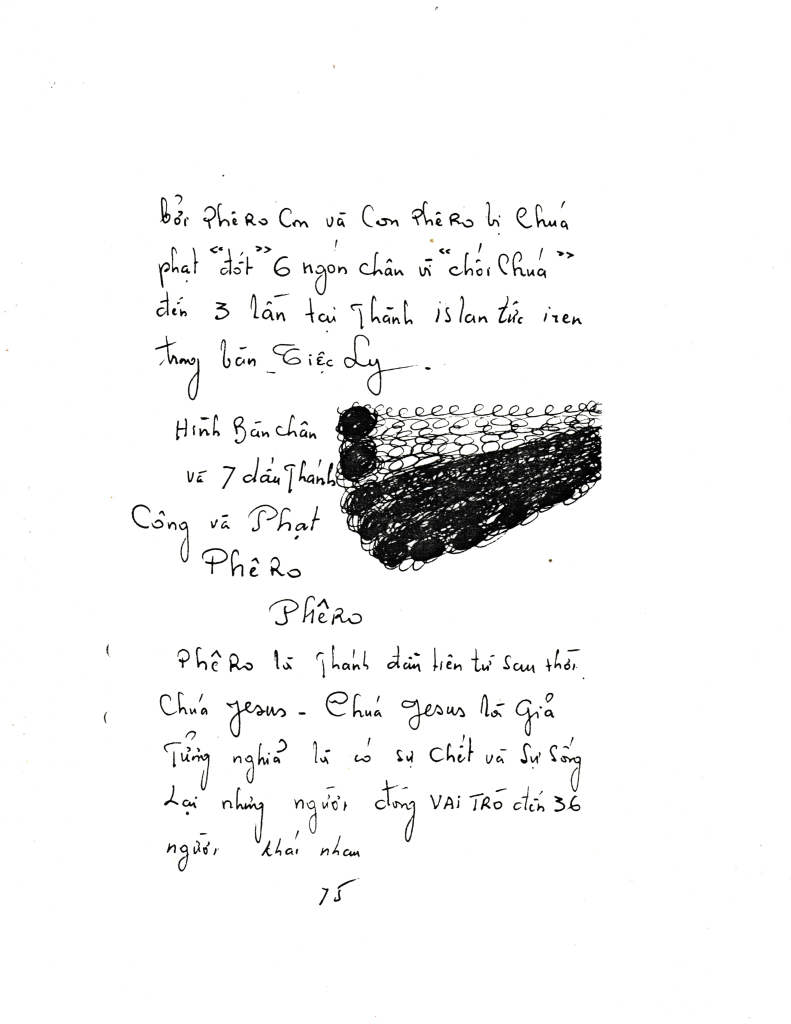 bởi Phêro Cm và Con Phêro bị Chúa
phạt "đốt" 6 ngón chân vì "chối Chúa"
đến 3 lần tại Thành islan tức iren
trong bàn Tiệc Ly.
Hình Bàn chân
và 7 dấu Thánh
Công và Phạt
Phêro
Phêro
Phêro là Thánh đầu tiên từ sau thời
Chúa Jesus - Chúa Jesus là Giả
Tưởng nghiã là có sự chết và Sự Sống
Lại nhưng người đóng VAI TRÒ đến 36
người khác nhau
75